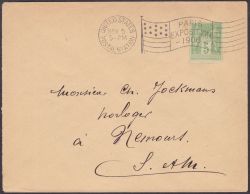 UNITED STATES
POSTAL STATION
NOV 5
5-PM
PARIS
EXPOSITION
1900
5
Monsieur Ch. Jockmans
horloger
à Nemours
S. &M.